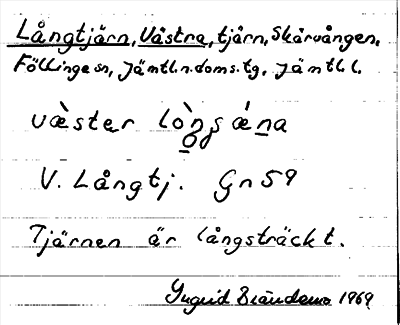 Långtjärn, Västra, tjärn, Skärvången,
Föllinge sn, Jämtl.n.doms.tg, Jämtl.l.
väster
V. Långtj. Gn 59
Tjärnen är långsträckt.
Ingrid 1969